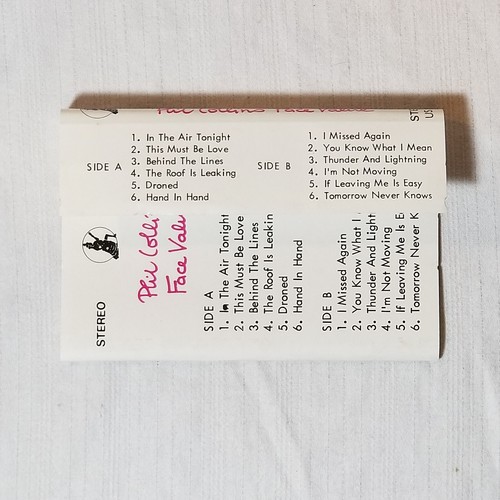 Phil Collins Face Value
STE
US
SIDE A
1. In The Air Tonight
2. This Must Be Love
3. Behind The Lines
4. The Roof Is Leaking
5. Droned
6. Hand In Hand
SIDE B
1. I Missed Again
2. You Know What I Mean
3. Thunder And Lightning
4. I'm Not Moving
5. If Leaving Me Is Easy
6. Tomorrow Never Knows
STEREO
Phil Colli
Face Valu
SIDE A
1. In The Air Tonight
2. This Must Be Love
3. Behind The Lines
4. The Roof Is Leakin
5. Droned
6. Hand In Hand
SIDE B
1. I Missed Again
2. You Know What I
3. Thunder And Light
4. I'm Not Moving
5. If Leaving Me Is E
6. Tomorrow Never K